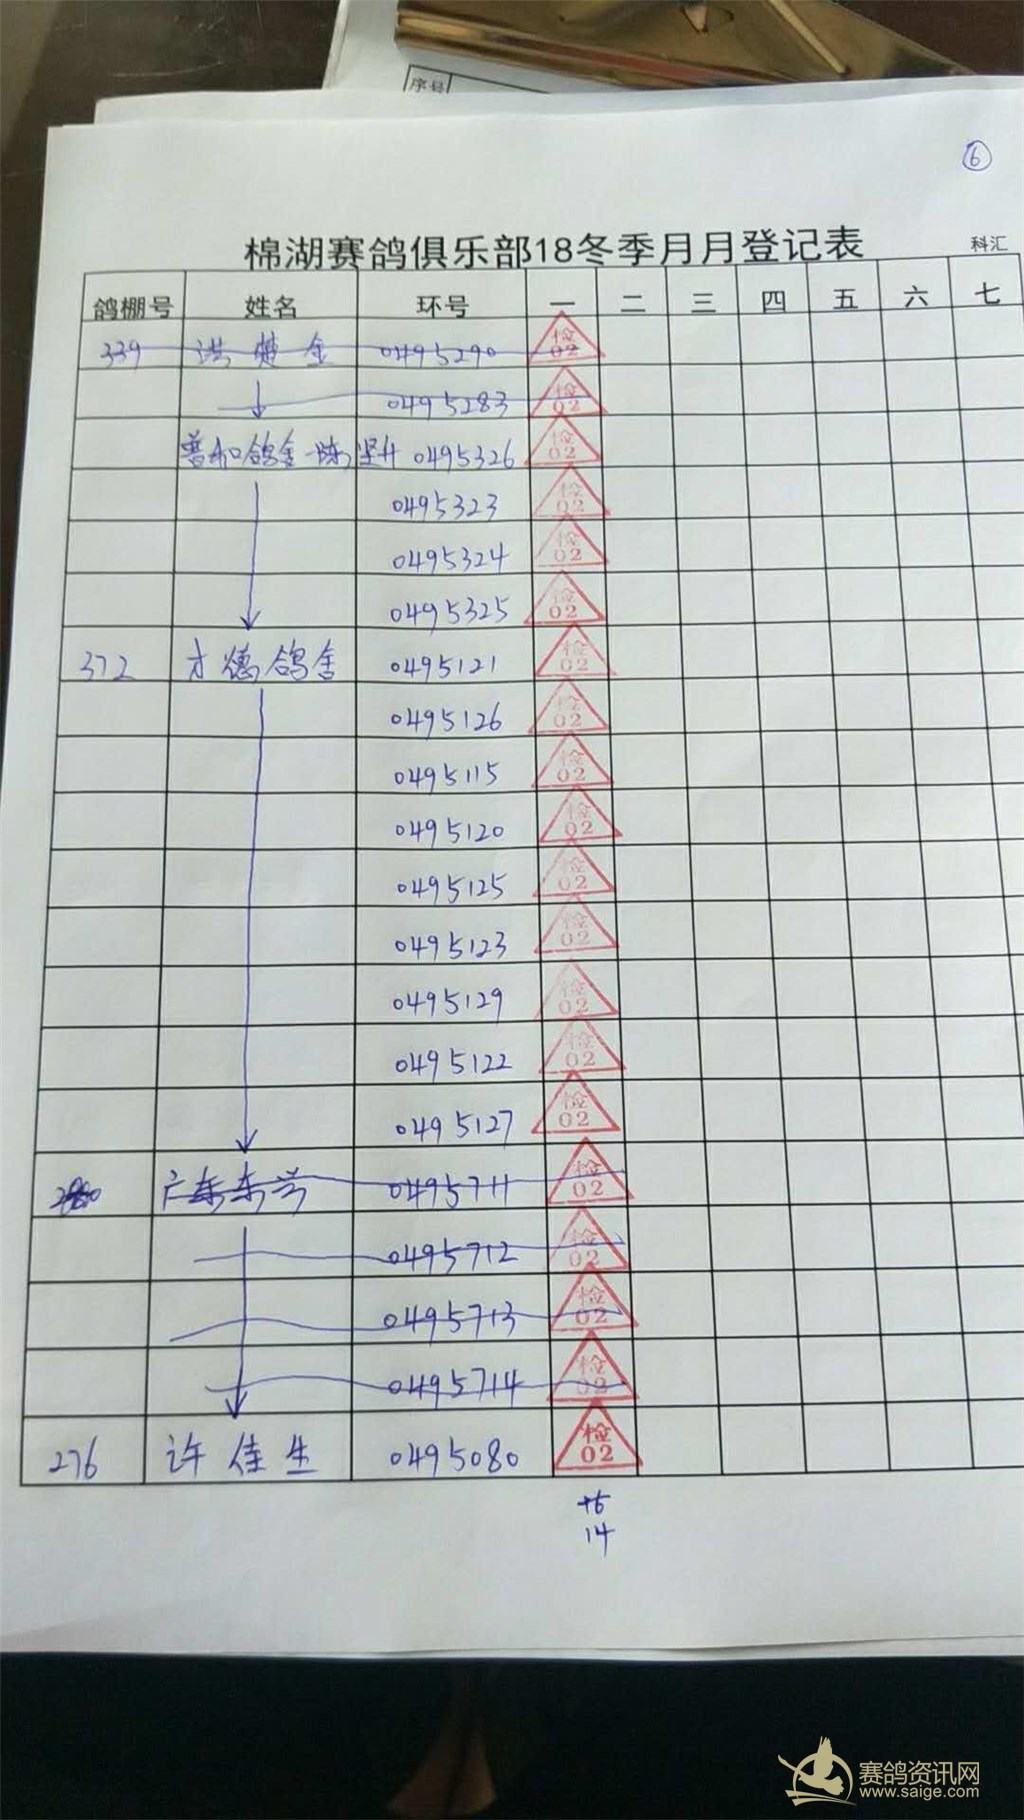 序号
6
棉湖赛鸽俱乐部18冬季月月登记表 科汇
鸽棚号 姓名 环号 一 二 三 四 五 六 七
339 洪楚金 0495290 检02
0495283 检02
普和鸽舍-陈坚升 0495326 检02
0495323 检02
0495324 检02
0495325 检02
372 才德鸽舍 0495121 检02
0495126 检02
0495115 检02
0495120 检02
0495125 检02
0495123 检02
0495129 检02
0495122 检02
0495127 检02
广东东 0495711 检02
0495712 检02
0495713 检02
0495714 检02
276 许佳生 0495080 检02
14
赛鸽资讯网
www.saige.com